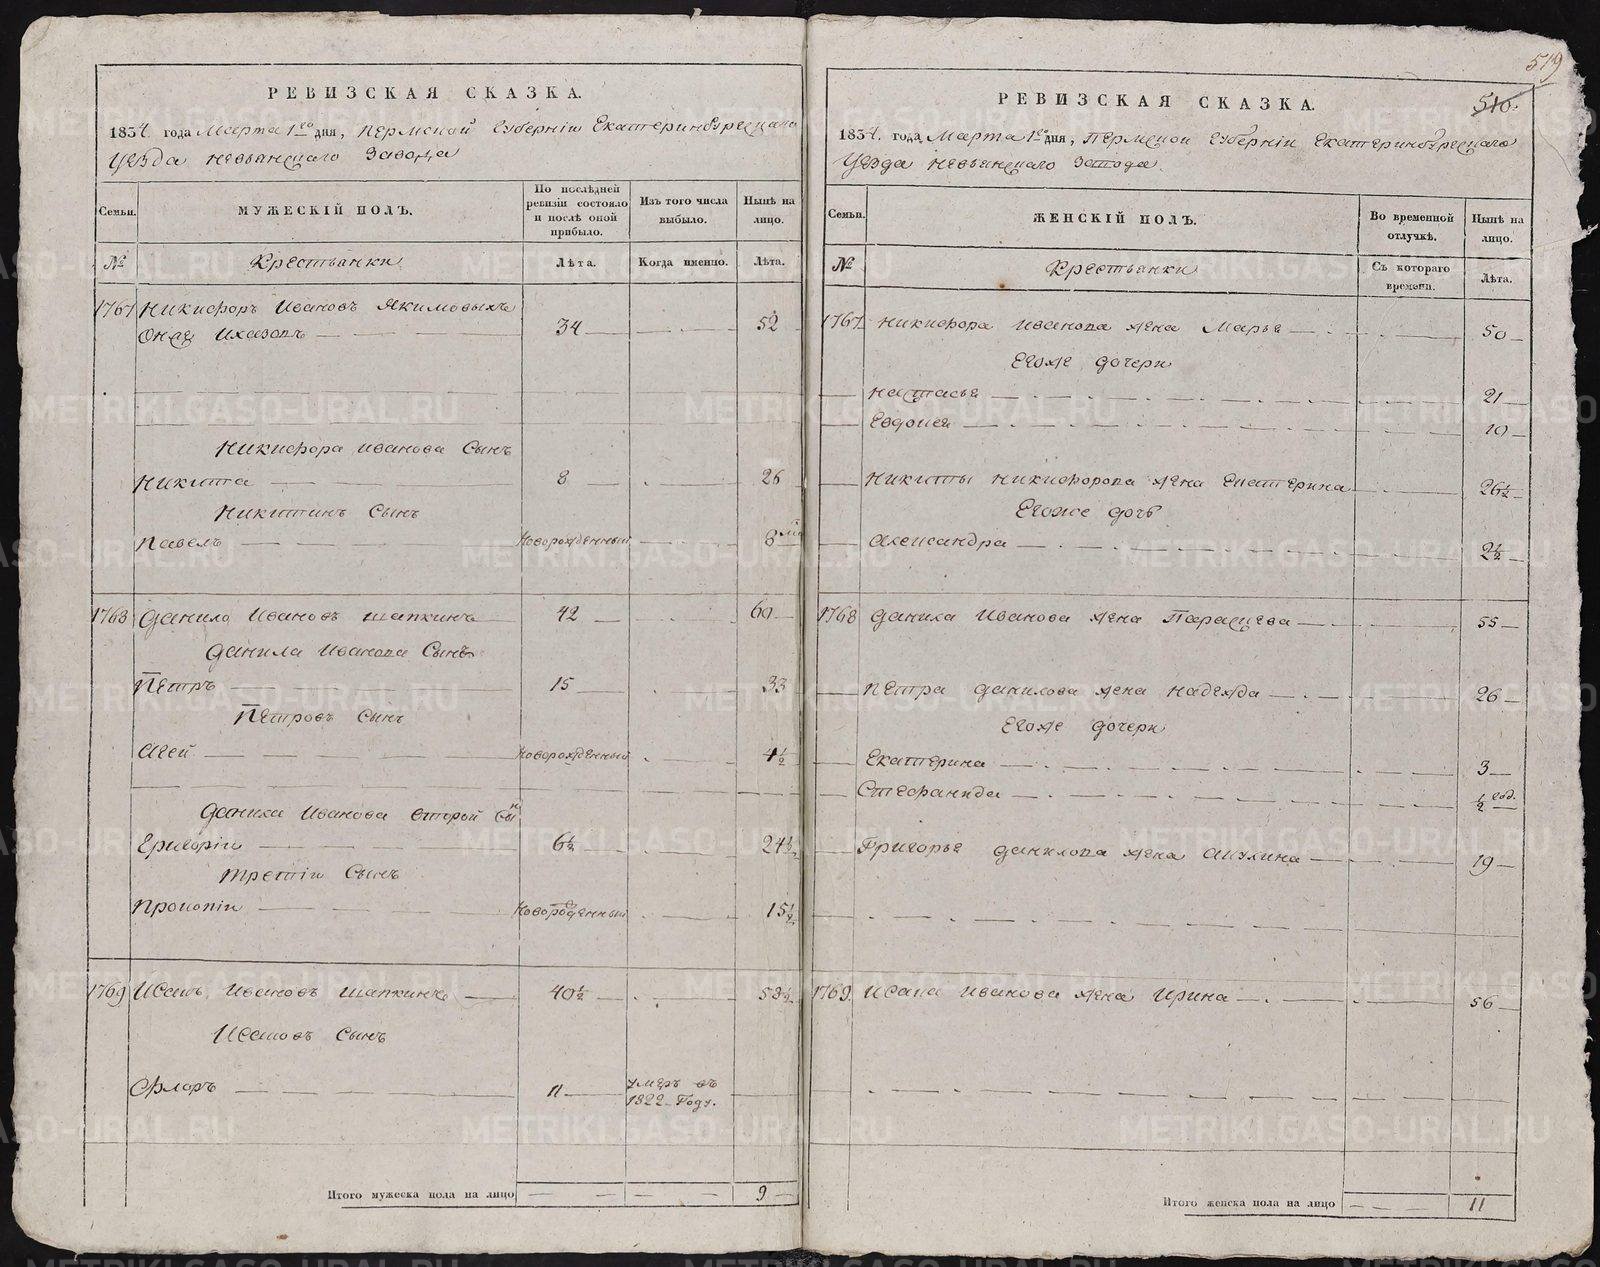 РЕВИЗСКАЯ СКАЗКА.
1834. года Марта 1го дня, Пермской Губерніи Екатеринбургскаго
уезда невьянскаго завода
Семьи.
МУЖЕСКІЙ ПОЛЪ.
По послѣдней ревизіи состояло и послѣ оной прибыло.
Изъ того числа выбыло.
Нынѣ на лицо.
№
Крестьянки
Лѣта.
Когда именно.
Лѣта.
1767 Никифоръ Ивановъ Якимовыхъ
34 52
Никифора иванова Сынъ
Никита 8 26
Никитинъ Сынъ
Павелъ новорожденный 8
1768 Данило Ивановъ шапкинъ 42 60
Данила Иванова Сынъ
Петръ 15 33
Петровъ Сынъ
Агей новорожденный 4½
Данила Иванова второй Сынъ
Григоріи 6½ 24½
третіи Сынъ
Прокопіи новорожденный 15½
1769 Исакъ Ивановъ шапкинъ 40½ 58½
Исаковъ Сынъ
Флоръ 11 умеръ въ
1822 Году.
Итого мужеска пола на лицо 9
519
510.
РЕВИЗСКАЯ СКАЗКА.
1834. года Марта 1го дня, Пермской Губерніи Екатеринбургскаго
уезда невьянскаго завода.
Семьи.
ЖЕНСКІЙ ПОЛЪ.
Во временной отлучкѣ.
Нынѣ на лицо.
№
Крестьянки
Съ котораго времени.
Лѣта.
1767 Никифора иванова жена Марья 50
Егоже дочери
настасья 21
Евдокея 10
Никиты никифорова жена екатерина 26½
Егоже дочь
александра 2½
1768 Данила Иванова жена Параскева 55
Петра данилова жена надежда 26
Егоже дочери
Екатерина 3
Стефанида ½ год.
Григорья данилова жена акулина 19
1769. Исака Иванова жена Ирина 56
Итого женска пола на лицо 11
METRIKI.GASO-URAL.RU